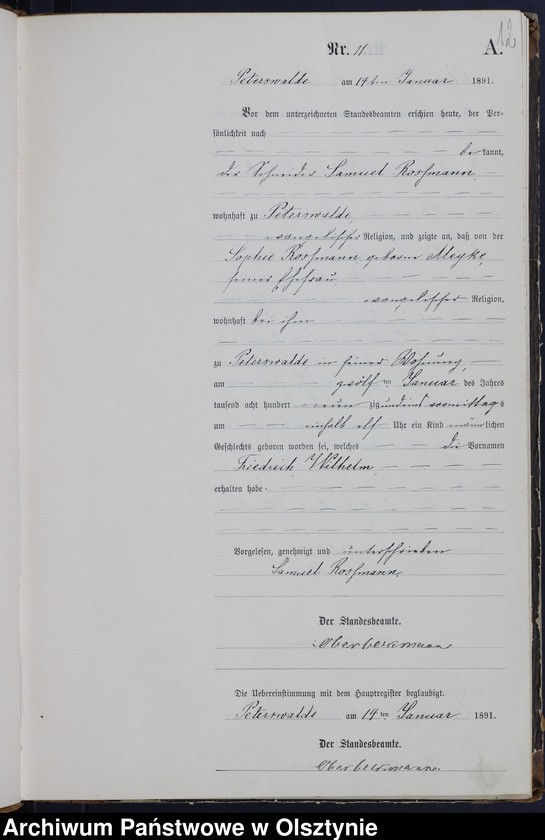 12
Nr. 11. A.
Peterswalde am 14ten Januar 1891.
Vor dem unterzeichneten Standesbeamten erschien heute, der Per-
sönlichkeit nach
be kannt,
der Schneider Samuel Rossmann,
wohnhaft zu Peterswalde,
evangelischer Religion, und zeigte an, daß von der
Sophie Rossmann geborne Meyke,
seiner Ehefrau,
evangelischer Religion,
wohnhaft bei ihm
zu Peterswalde in seiner Wohnung,
am zwölf ten Januar des Jahres
tausend acht hundert neun zig und eins vormittags
um einhalb elf Uhr ein Kind männlichen
Geschlechts geboren worden sei, welches die Vornamen
Friedrich Wilhelm
erhalten habe.
Vorgelesen, genehmigt und unterschrieben
Samuel Rossmann.
Der Standesbeamte.
Oberberkmann
Die Uebereinstimmung mit dem Hauptregister beglaubigt.
Peterswalde am 14ten Januar 1891.
Der Standesbeamte.
Oberberkmann.
Archiwum Państwowe w Olsztynie